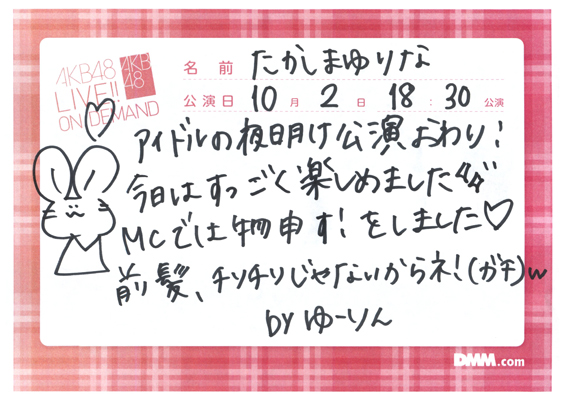 AKB48
LIVE!!
ON DEMAND
AKB
48
名前 たかしまゆりな
公演日 10月2日 18:30公演
アイドルの夜明け公演おわり!
今日はすっごく楽しめました
MCでは物申す!をしました♡
前髪、チリチリじゃないからネ!(ガチ)w
by ゆーりん
DMM.com